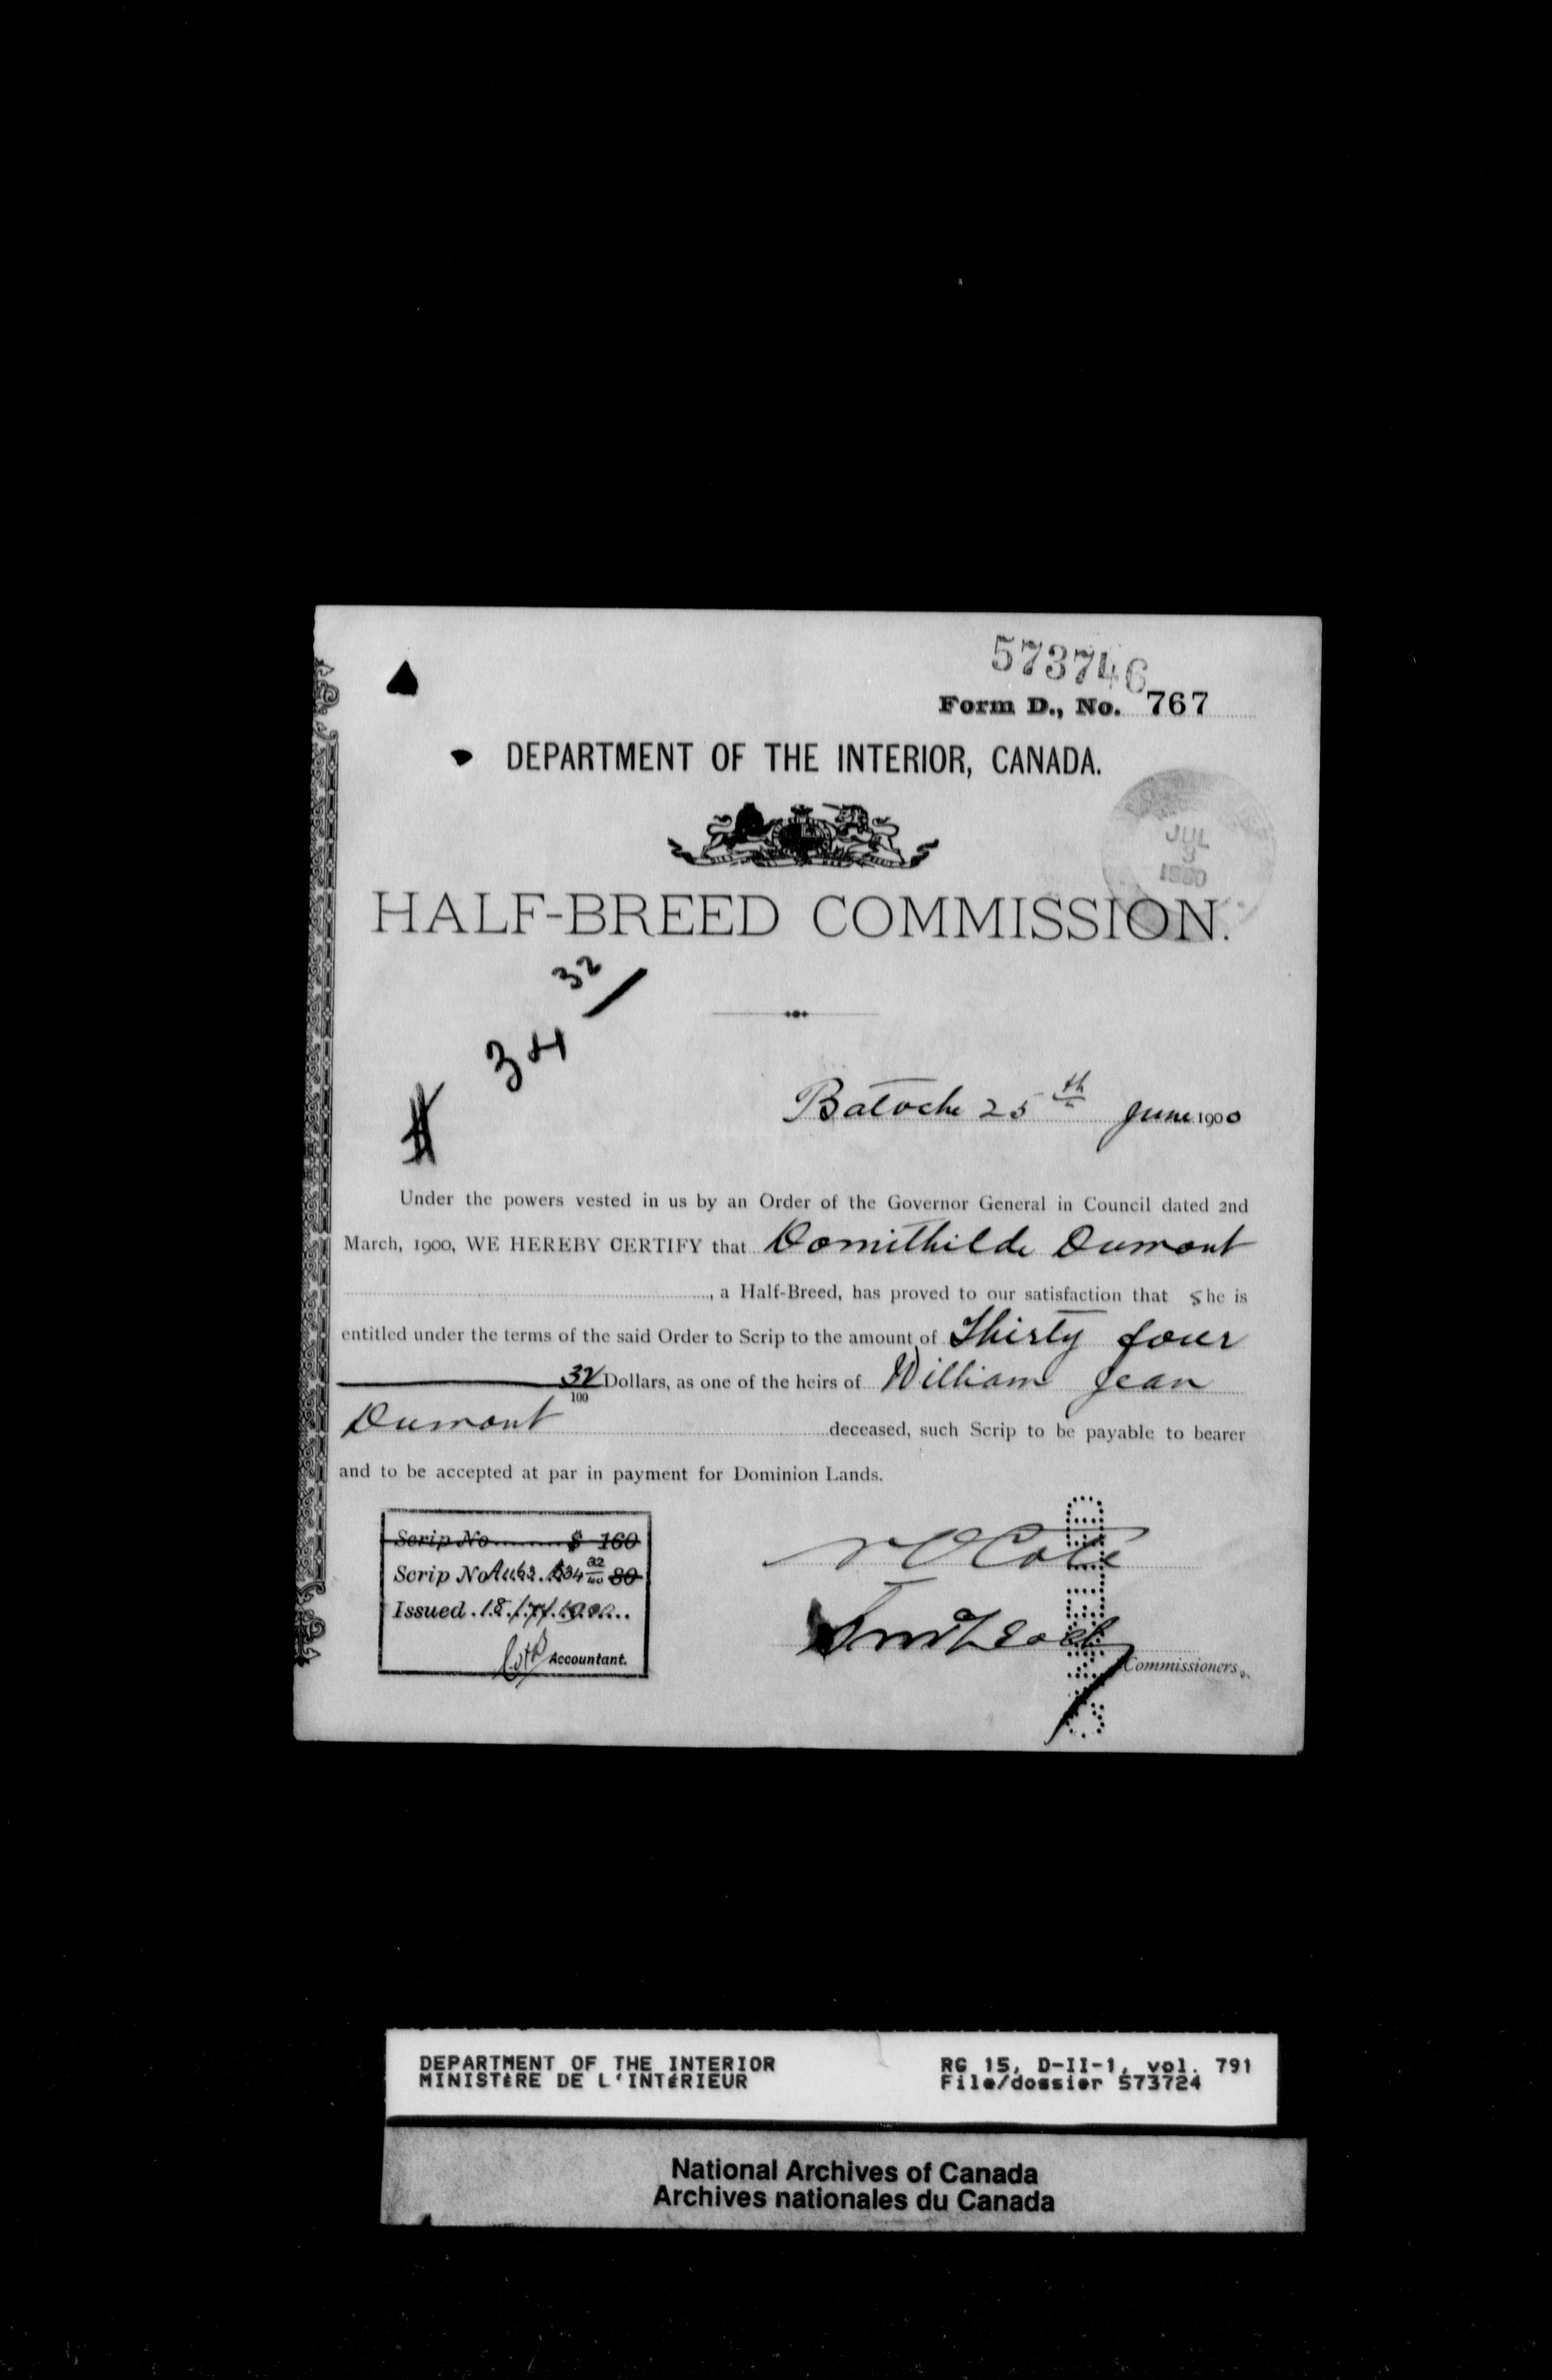 573746
Form D., No. 767
DEPARTMENT OF THE INTERIOR, CANADA.
JUL
3
1900
HALF-BREED COMMISSION.
$ 34 32/
Batoche 25th June 1900
Under the powers vested in us by an Order of the Governor General in Council dated 2nd
March, 1900, WE HEREBY CERTIFY that Domithilde Dumont
, a Half-Breed, has proved to our satisfaction that she is
entitled under the terms of the said Order to Scrip to the amount of Thirty four
32/100 Dollars, as one of the heirs of William Jean
Dumont deceased, such Scrip to be payable to bearer
and to be accepted at par in payment for Dominion Lands.
Scrip No. $ 160
Scrip No $34 32/100 80
Issued
Accountant.
N O Coté
Commissioners.
DEPARTMENT OF THE INTERIOR
MINISTÈRE DE L'INTÉRIEUR
RG 15, D-II-1, vol. 791
File/dossier 573724
National Archives of Canada
Archives nationales du Canada